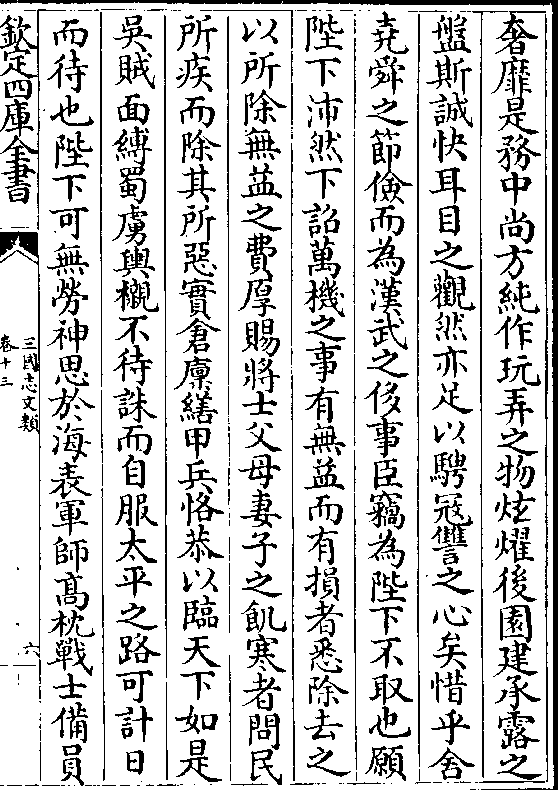 奢靡是務中尚方純作玩弄之物炫燿後園建承露之
盤斯誠快耳目之觀然亦足以騁冦讐之心矣惜乎舍
堯舜之節儉而為漢武之侈事臣竊為陛下不取也願
陛下沛然下詔萬機之事有無益而有損者悉除去之
以所除無益之費厚賜將士父母妻子之飢寒者問民
所疾而除其所惡實倉廩繕甲兵恪恭以臨天下如是
吳賊面縛蜀虜輿櫬不待誅而自服太平之路可計日
而待也陛下可無勞神思於海表軍師髙枕戰士備員
欽定四庫全書
三國志文類
卷十三
六